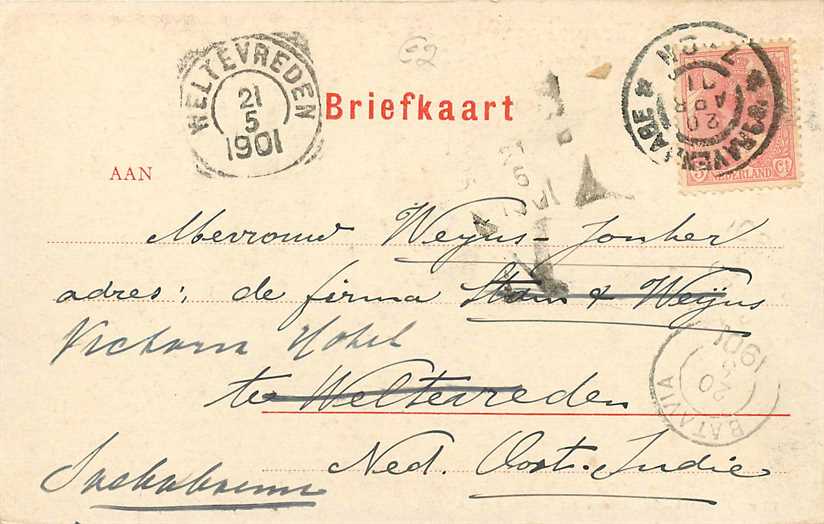 G2
WELTEVREDEN
21
5
1901
Briefkaart
'S GRAVENHAGE
20
APR
11
7-8 N
5 Ct
NEDERLAND
AAN
Mevrouw Weyns-Jonker
adres: de firma Stam & Weyns
Victoria Hotel
te Weltevreden
Ned. Oost-Indie
Soekaboemi
BATAVIA
20
5
1901